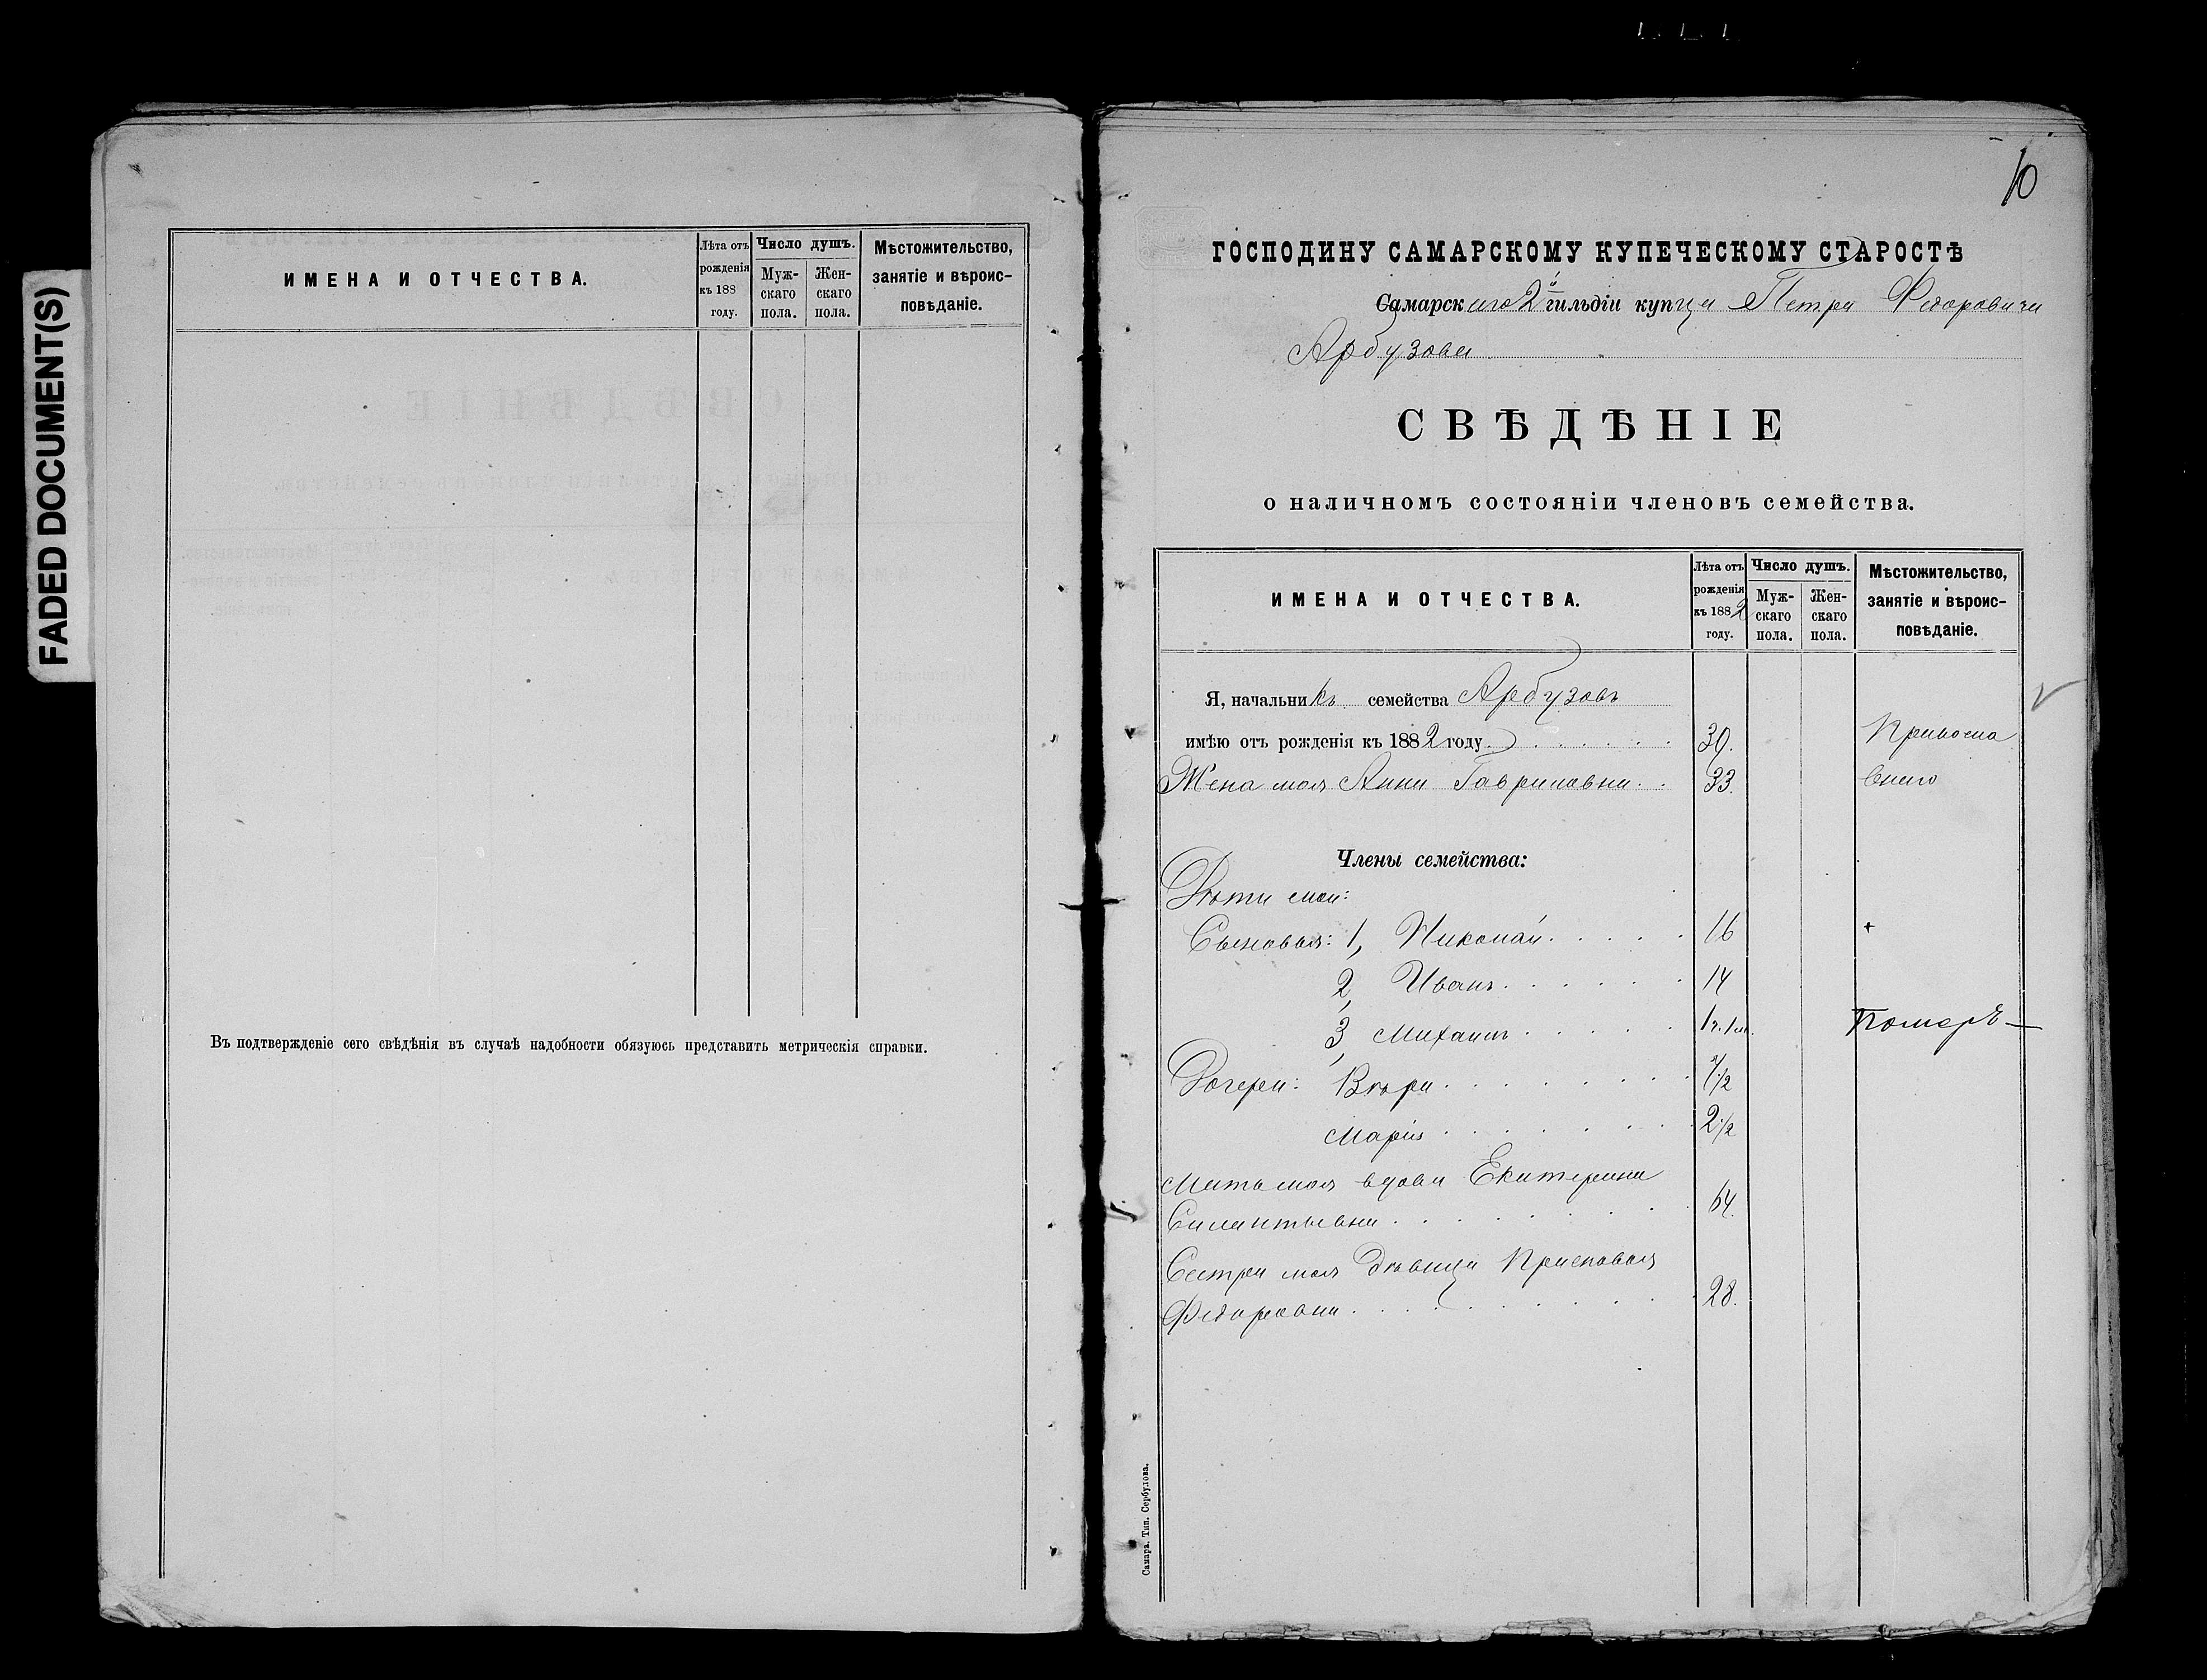 FADED DOCUMENT(S)
ИМЕНА И ОТЧЕСТВА.
Лѣта отъ рожденія къ 188 году.
Число душъ.
Мужскаго пола.
Женскаго пола.
Мѣстожительство, занятіе и вѣроисповѣданіе.
Въ подтвержденіе сего свѣдѣнія въ случаѣ надобности обязуюсь представить метрическія справки.
10
ГОСПОДИНУ САМАРСКОМУ КУПЕЧЕСКОМУ СТАРОСТѢ
Самарскаго 2й гильдіи купца Петра Федоровича
Арбузова
СВѢДѢНІЕ
о наличномъ состояніи членовъ семейства.
ИМЕНА И ОТЧЕСТВА.
Лѣта отъ рожденія къ 1882 году.
Число душъ.
Мужскаго пола.
Женскаго пола.
Мѣстожительство, занятіе и вѣроисповѣданіе.
Я, начальникъ семейства Арбузовъ
имѣю отъ рожденія къ 1882 году . . . . . 39. Правосла
Жена моя Анна Гавриловна . . 33. внаго
Члены семейства:
Дѣти мои:
Сыновья: 1, Николай . . . . . 16
2, Иванъ . . . . . . 14
3, Михаилъ . . . . . 1г. 1м. Померъ —
Дочери: Вѣра . . . . . . . . 7 1/2
Марія . . . . . . . . 2 1/2
Мать моя вдова Екатерина
Силантьевна . . . . . . . 64.
Сестра моя дѣвица
Федоровна . . . . . . . . 28.
Самара. Тип. Сербулова.